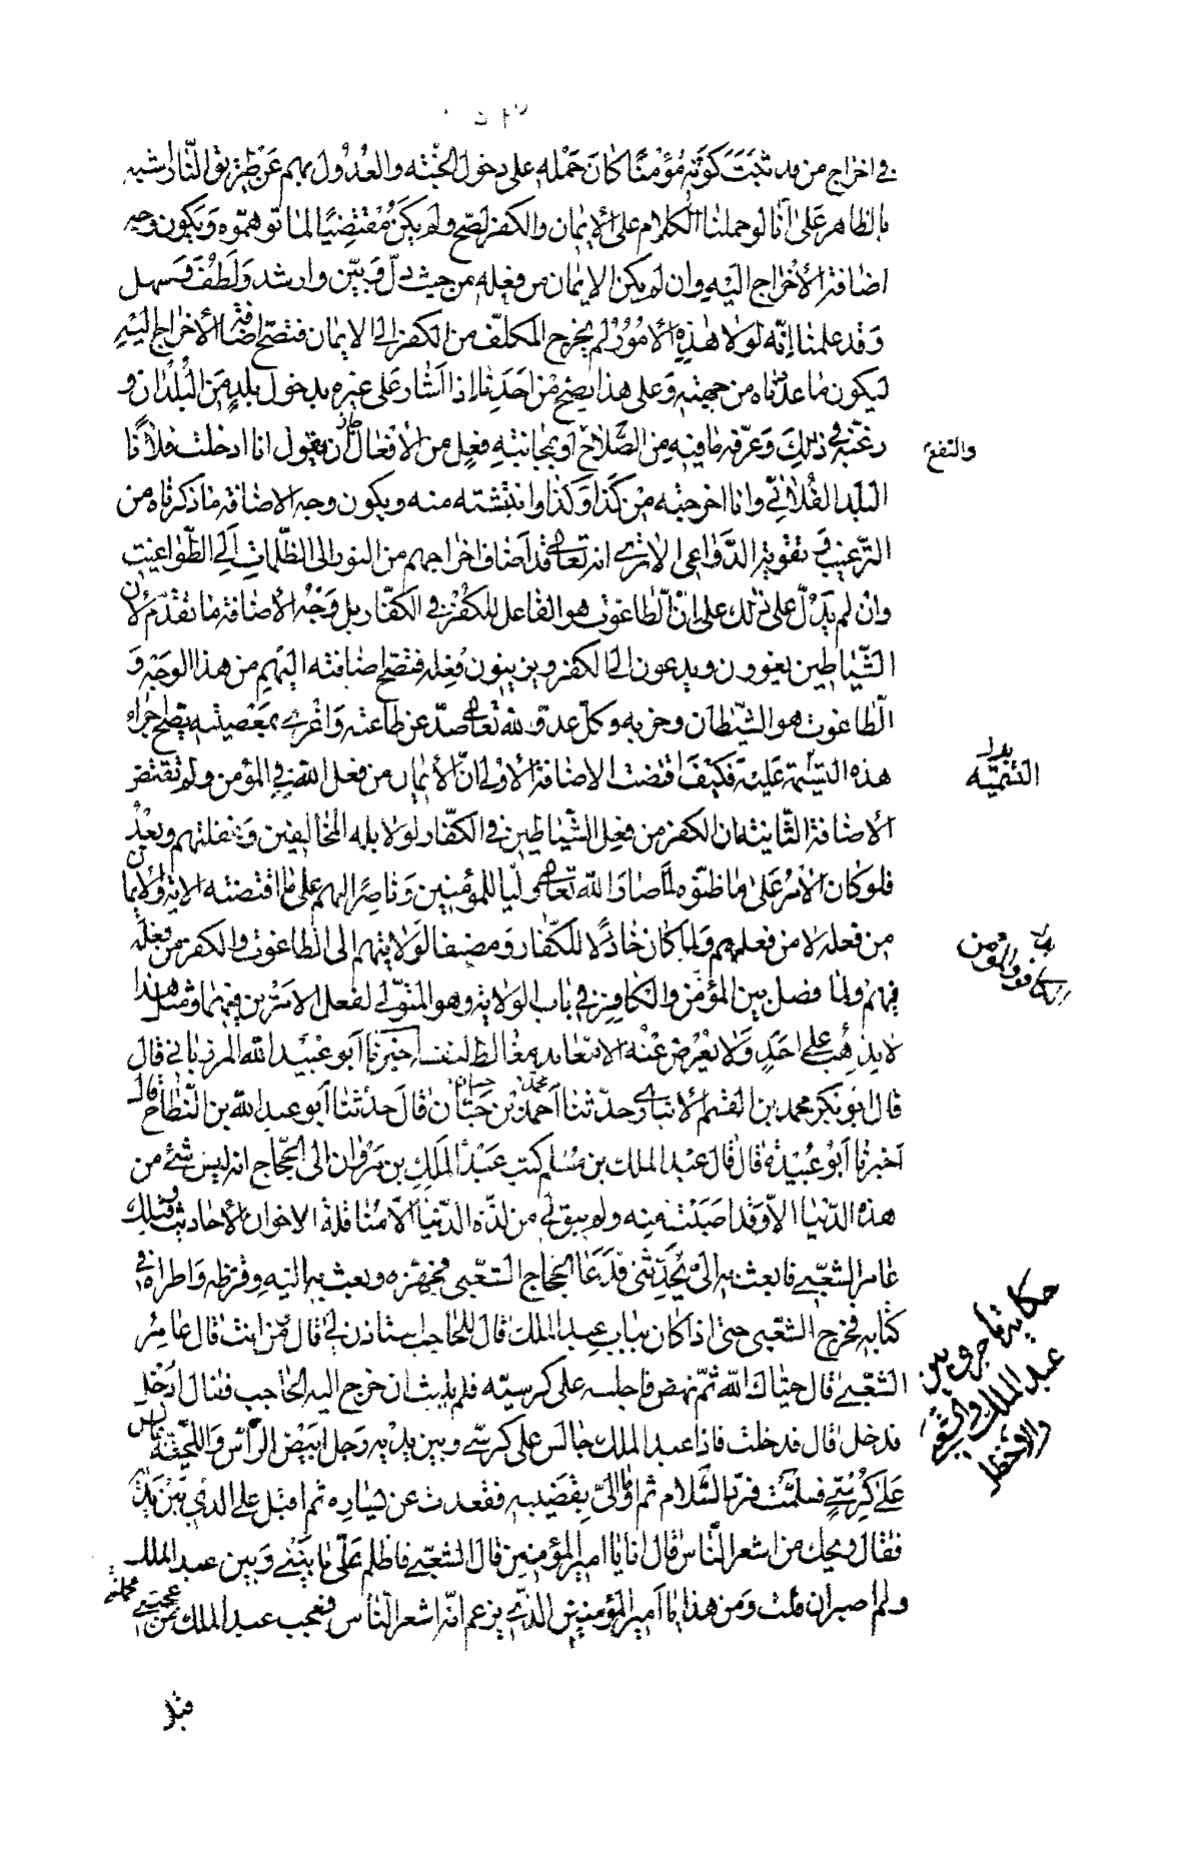 في اخراج من قد ثبتت كونه مؤمنًا كان حمله على دخول الجنّة والعدول بهم عن طريق النّار اشبه
بالظاهر على أنّا لو حملنا الكلام على الإيمان والكفر لصحّ ولم يكن مُقتضيًا لما توهّموه ويكون وجه
اضافة الاخراج اليه وان لم يكن الايمان من فعله من حيث دلّ وبيّن وارشد ولطف وسهل
وقد علمنا إنّه لولا هٰذه الأمور لم يخرج المكلّف من الكفر الى الايمان فتصحّ اضافة الاخراج اليه
ليكون ما عددناه من جهته وعلى هذا يصحّ من احدنا اذا اشار على غيره بدخول بلدٍ من البلدان و
رغّبه في ذلك وعرّفه ما فيه من الصّلاح او بمجانبة فعلٍ من الأفعال أن يقول انا ادخلت فلانًا
والنفع
البلد الفلانيّ وانا اخرجته من كذا وكذا وانتشته منه ويكون وجه الاضافة ما ذكرناه من
الترغيب وتقوية الدّواعى الا ترى انه تعالى قد اضاف اخراجهم من النور الى الظّلمات الى الطّواغيت
وان لم يدلّ على ذلك على انّ الطاغوت هو الفاعل للكفر في الكفّار بل وجه الأضافة ما تقدّم لأن
الشّياطين يغوون ويدعون الى الكفر ويزينون فعله فتصحّ اضافته اليهم من هذا الوجه و
الطاغوت هو الشّيطان وحزبه وكلّ عدوّ لله تعالى صدّ عن طاعته واغرى بمعصيته يصلح اجراء
هذه التسمية عليه فكيف اقتضت الاضافة الاولى انّ الأيمان من فعل الله في المؤمن ولم تقتض
بدل التسميّة
الأضافة الثانية ان الكفر من فعل الشّياطين في الكفّار لولا بله المخالفين وغفلتهم وبعدُ
فلو كان الأمر على ما ظنّوه لما صار الله تعالى وليّا للمؤمنين وناصرًا لهم على ما اقتضته الاية والايمان
من فعله لا من فعلهم ولما كان خاذلًا للكفّار ومضيفا لولايتهم الى الطاغوت والكفر من فعله
الكافر والمؤمن
فيهم ولما فضل بين المؤمن والكافر في باب الولاية وهو المتولى لفعل الامرين فيهما ومثل هذا
لا يذهب على احدٍ ولا يعرض عنه الا معاند مغالط لنفسه اخبرنا أبو عبيد الله المرزبانى قال
قال ابو بكر محمد بن القسم الانبارى حدّثنا احمد بن حيّان قال حدثنا أبو عبد الله بن النّطاح قال
محمد حسان
اخبرنا أبو عبيدة قال قال عبد الملك بن مسلم كتب عبد الملك بن مروان الى الحجّاج انه ليس شئ من
هذه الدّنيا الّا وقد اصبت منه ولم يبق لي من لذّة الدّنيا الّا مناقلة الاخوان الأحاديث وقبلك
عامر الشّعبي فابعث به الىّ يحدّثنى فدعا الحجاج الشعبى فجهّزه وبعث به اليه وقرّظه واطراه في
كتابه فخرج الشعبى حتى اذا كان بباب عبد الملك قال للحاجب استاذن لي قال من انت قال عامر
الشّعبي قال حيّاك الله ثمّ نهض فاجلسه على كرسيّه فلم يلبث ان خرج اليه الحاجب فقال ادخل
حكاية ما جرى بين عبد الملك والشعبي والاخطل
فدخل قال فدخلت فاذا عبد الملك جالس على كرسي وبين يديه رجل ابيض الرأس واللحية جالس
على كرسيّ فسلّمت فردّ السّلام ثم اومأ الىّ بقضيبه فقعدت عن يساره ثم اقبل على الذي بين يديه
فقال ويحك من اشعر النّاس قال انا يا امير المؤمنين قال الشعبي فاظلم علىّ ما بيني وبين عبد الملك
ولم اصبر ان قلت ومن هذا يا أمير المؤمنين الّذي يزعم انّه اشعر النّاس فعجب عبد الملك من عجلتي
قبل